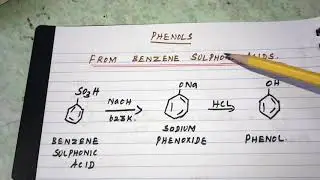 PHENOLS
FROM BENZENE SULPHONIC ACIDS.
SO3H
ONa
OH
NaOH
HCl
623K
BENZENE
SULPHONIC
ACID
SODIUM
PHENOXIDE
PHENOL.